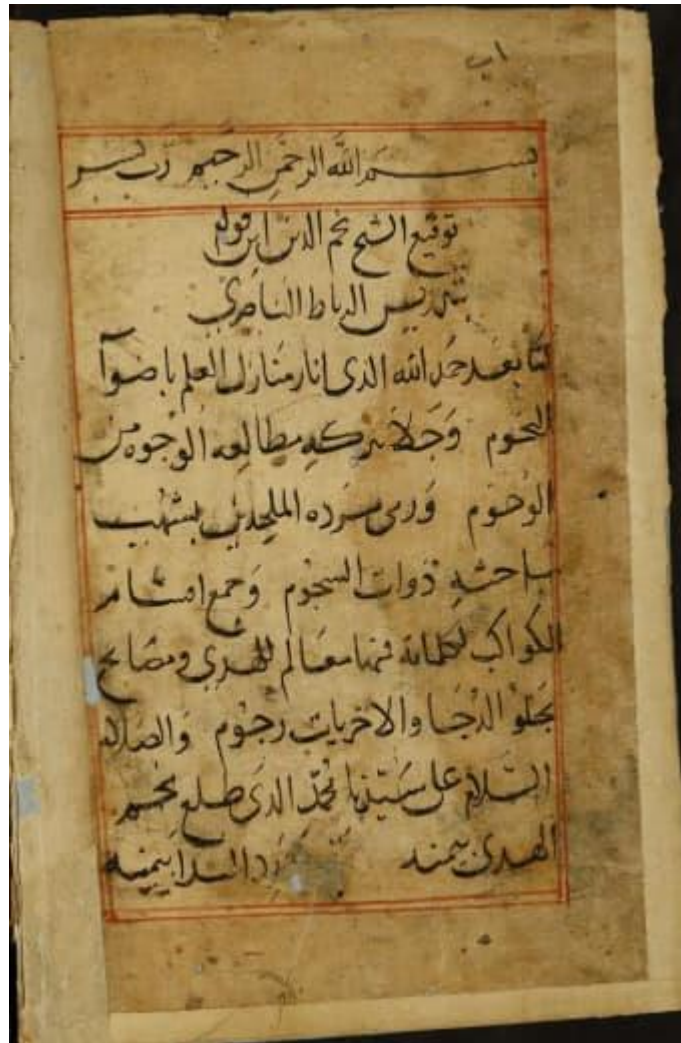 اب
بسم الله الرحمن الرحيم رب يسر
توقيع الشيخ نجم الدين ابن
بتدريس الرباط الناصري
بعد حمد الله الذي انار منازل العلم باضوآ
النجوم وجلا ببركه مطالعه الوجوه من
الوجوم ورمى مرده الملحدين بشهب
مباحثه ذوات السجوم وجمع اقسام
الكواكب لكلماته فمنها معالم للهدى ومصابح
تجلو الدجا والاخريات رجوم والصلاه
السلام على سيدنا محمد الذي طلع نجم
الهدى بيمنه الندا بيمينه